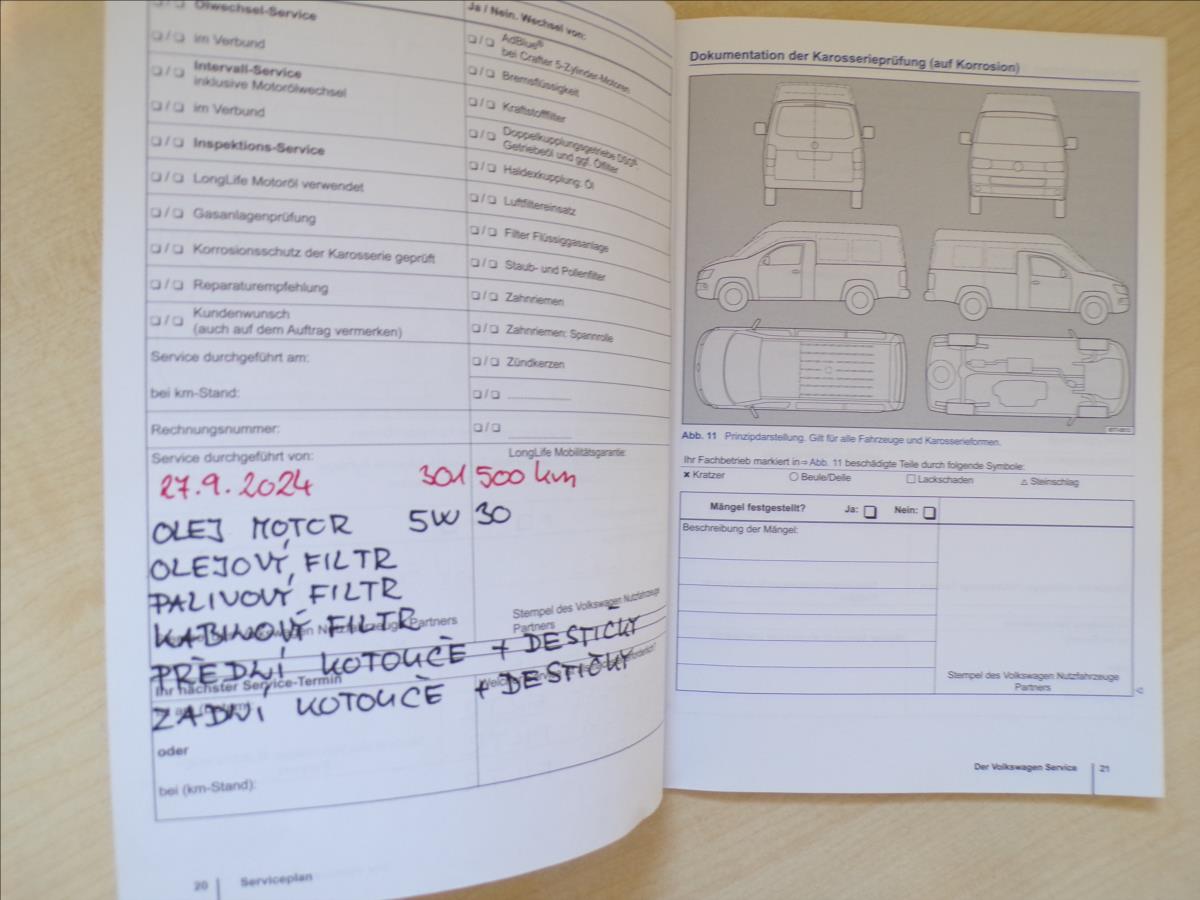 Ölwechsel-Service
❏ / ❏ im Verbund
❏ / ❏ Intervall-Service
inklusive Motorölwechsel
❏ / ❏ im Verbund
❏ / ❏ Inspektions-Service
❏ / ❏ LongLife Motoröl verwendet
❏ / ❏ Gasanlagenprüfung
❏ / ❏ Korrosionsschutz der Karosserie geprüft
❏ / ❏ Reparaturempfehlung
❏ / ❏ Kundenwunsch
(auch auf dem Auftrag vermerken)
Service durchgeführt am:
bei km-Stand:
Rechnungsnummer:
Service durchgeführt von:
Ja / Nein. Wechsel von:
❏ / ❏ AdBlue®
bei Crafter 5-Zylinder-Motoren
❏ / ❏ Bremsflüssigkeit
❏ / ❏ Kraftstofffilter
❏ / ❏ Doppelkupplungsgetriebe DSG®:
Getriebeöl und ggf. Ölfilter
❏ / ❏ Haldexkupplung: Öl
❏ / ❏ Luftfiltereinsatz
❏ / ❏ Filter Flüssiggasanlage
❏ / ❏ Staub- und Pollenfilter
❏ / ❏ Zahnriemen
❏ / ❏ Zahnriemen: Spannrolle
❏ / ❏ Zündkerzen
❏ / ❏
❏ / ❏
LongLife Mobilitätsgarantie:
27.9.2024 301 500 km
OLEJ MOTOR 5W 30
OLEJOVÝ FILTR
PALIVOVÝ FILTR
KABINOVÝ FILTR
Partners
Stempel des Volkswagen Nutzfahrzeuge
Partners
PŘEDNÍ KOTOUČE + DESTIČKY
Ihr nächster Service-Termin
ZADNÍ KOTOUČE + DESTIČKY
oder
bei (km-Stand):
20 Serviceplan
Dokumentation der Karosserieprüfung (auf Korrosion)
Abb. 11 Prinzipdarstellung. Gilt für alle Fahrzeuge und Karosserieformen.
Ihr Fachbetrieb markiert in ⇒ Abb. 11 beschädigte Teile durch folgende Symbole:
✖ Kratzer ○ Beule/Delle □ Lackschaden △ Steinschlag
Mängel festgestellt? Ja: ❏ Nein: ❏
Beschreibung der Mängel:
Stempel des Volkswagen Nutzfahrzeuge
Partners
Der Volkswagen Service 21